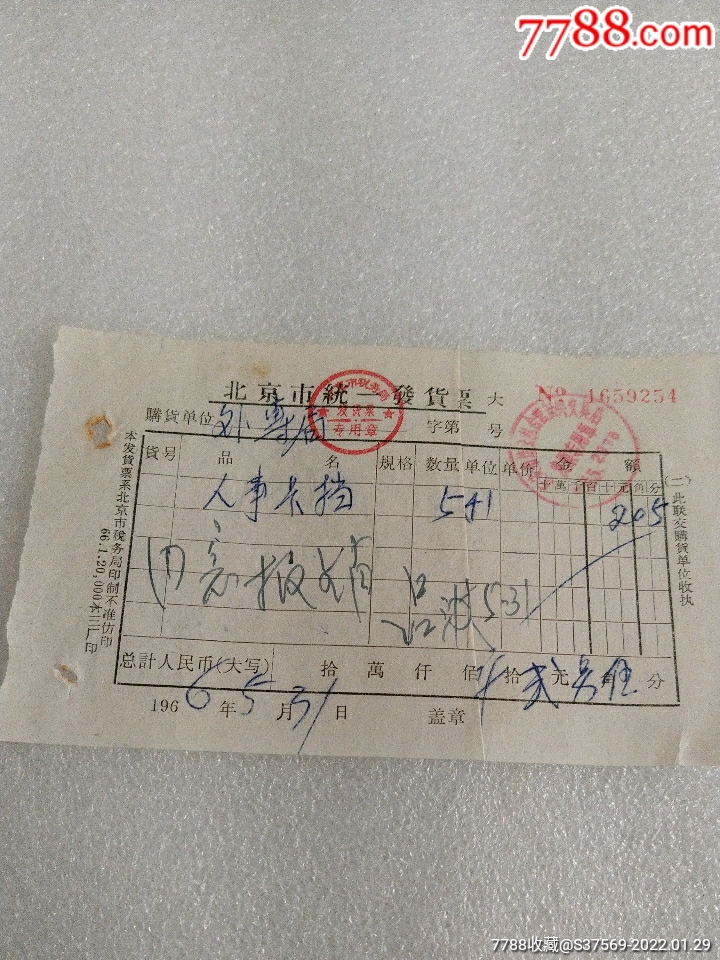 7788.com
北京市統一發貨票 大 No 1659254
購貨单位 外專局 字第 号
发货票
专用章
貨号 品名 規格 数量 单位 单价 金額
十萬千百十元角分
人事卡档 541 205
同意报销 吕波 5.31
总計人民币(大写) 拾 萬 仟 佰 拾 貳 元 角 伍 分
1966年5月31日 盖章
(二)此联交購貨单位收执
本发货票系北京市税务局印制不准仿印
66.1.20,000本
7788收藏@S37569-2022.01.29